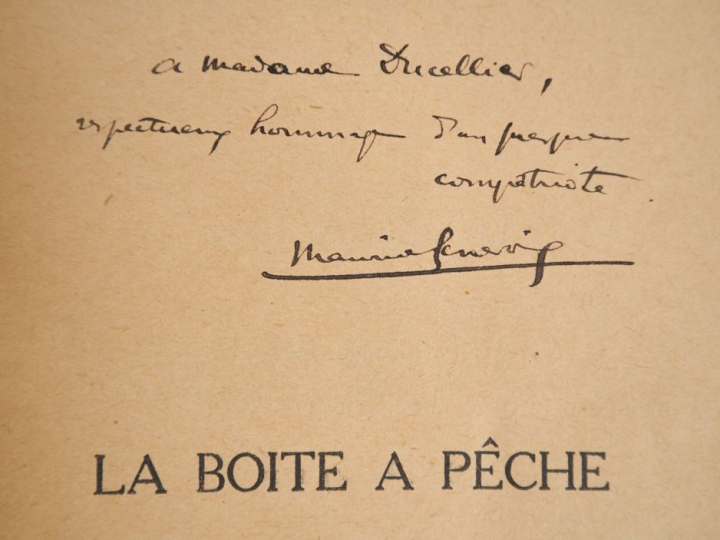 a madame Ducellier,
respectueux hommage d'un presque
compatriote.
Maurice Genevoix
LA BOITE A PÊCHE